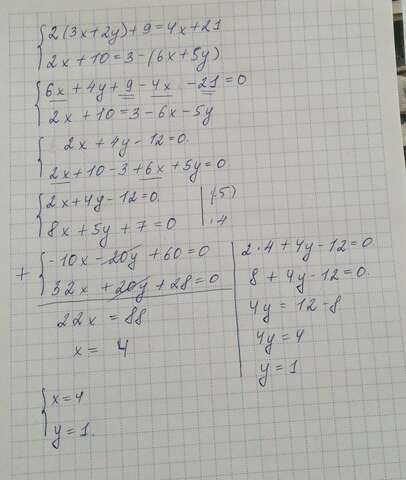 2(3x+2y)+9=4x+21
2x+10=3-(6x+5y)
6x+4y+9-4x-21=0
2x+10=3-6x-5y
2x+4y-12=0.
2x+10-3+6x+5y=0.
2x+4y-12=0. | ·(-5)
8x+5y+7=0 | ·4
+ -10x-20y+60=0
32x+20y+28=0
22x=88
x=4
2·4+4y-12=0.
8+4y-12=0.
4y=12-8
4y=4
y=1
x=4
y=1.